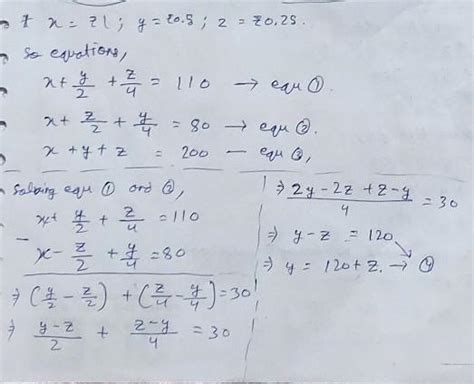 x = ₹1; y = ₹0.5; z = ₹0.25.
So equations,
x + y/2 + z/4 = 110 → equ ①.
x + z/2 + y/4 = 80 → equ ②.
x + y + z = 200 — equ ③,
Solving equ ① and ②,
x + y/2 + z/4 = 110
− x − z/2 + y/4 = 80
⇒ (y/2 − z/2) + (z/4 − y/4) = 30
⇒ (y−z)/2 + (z−y)/4 = 30
⇒ (2y − 2z + z − y)/4 = 30
⇒ y − z = 120
⇒ y = 120 + z. → ④